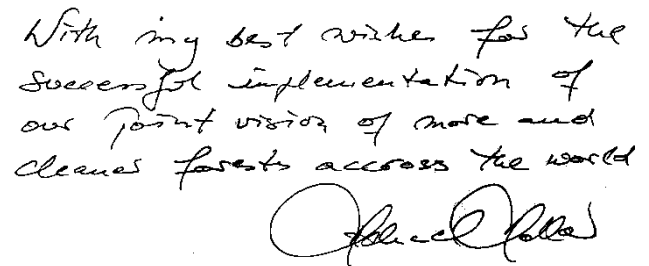 With my best wishes for the
successful implementation of
our joint vision of more and
cleaner forests accross the world